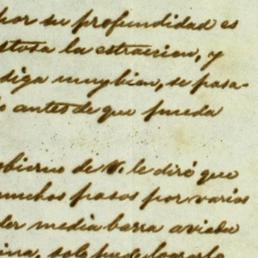 por su profundidad es
stosa la estraccion, y
diga muy bien, se pasa-
antes de que pueda
obierno de V. le diré que
muchos pasos por varios
der media barra aviada
ina, solo puede lograrlo